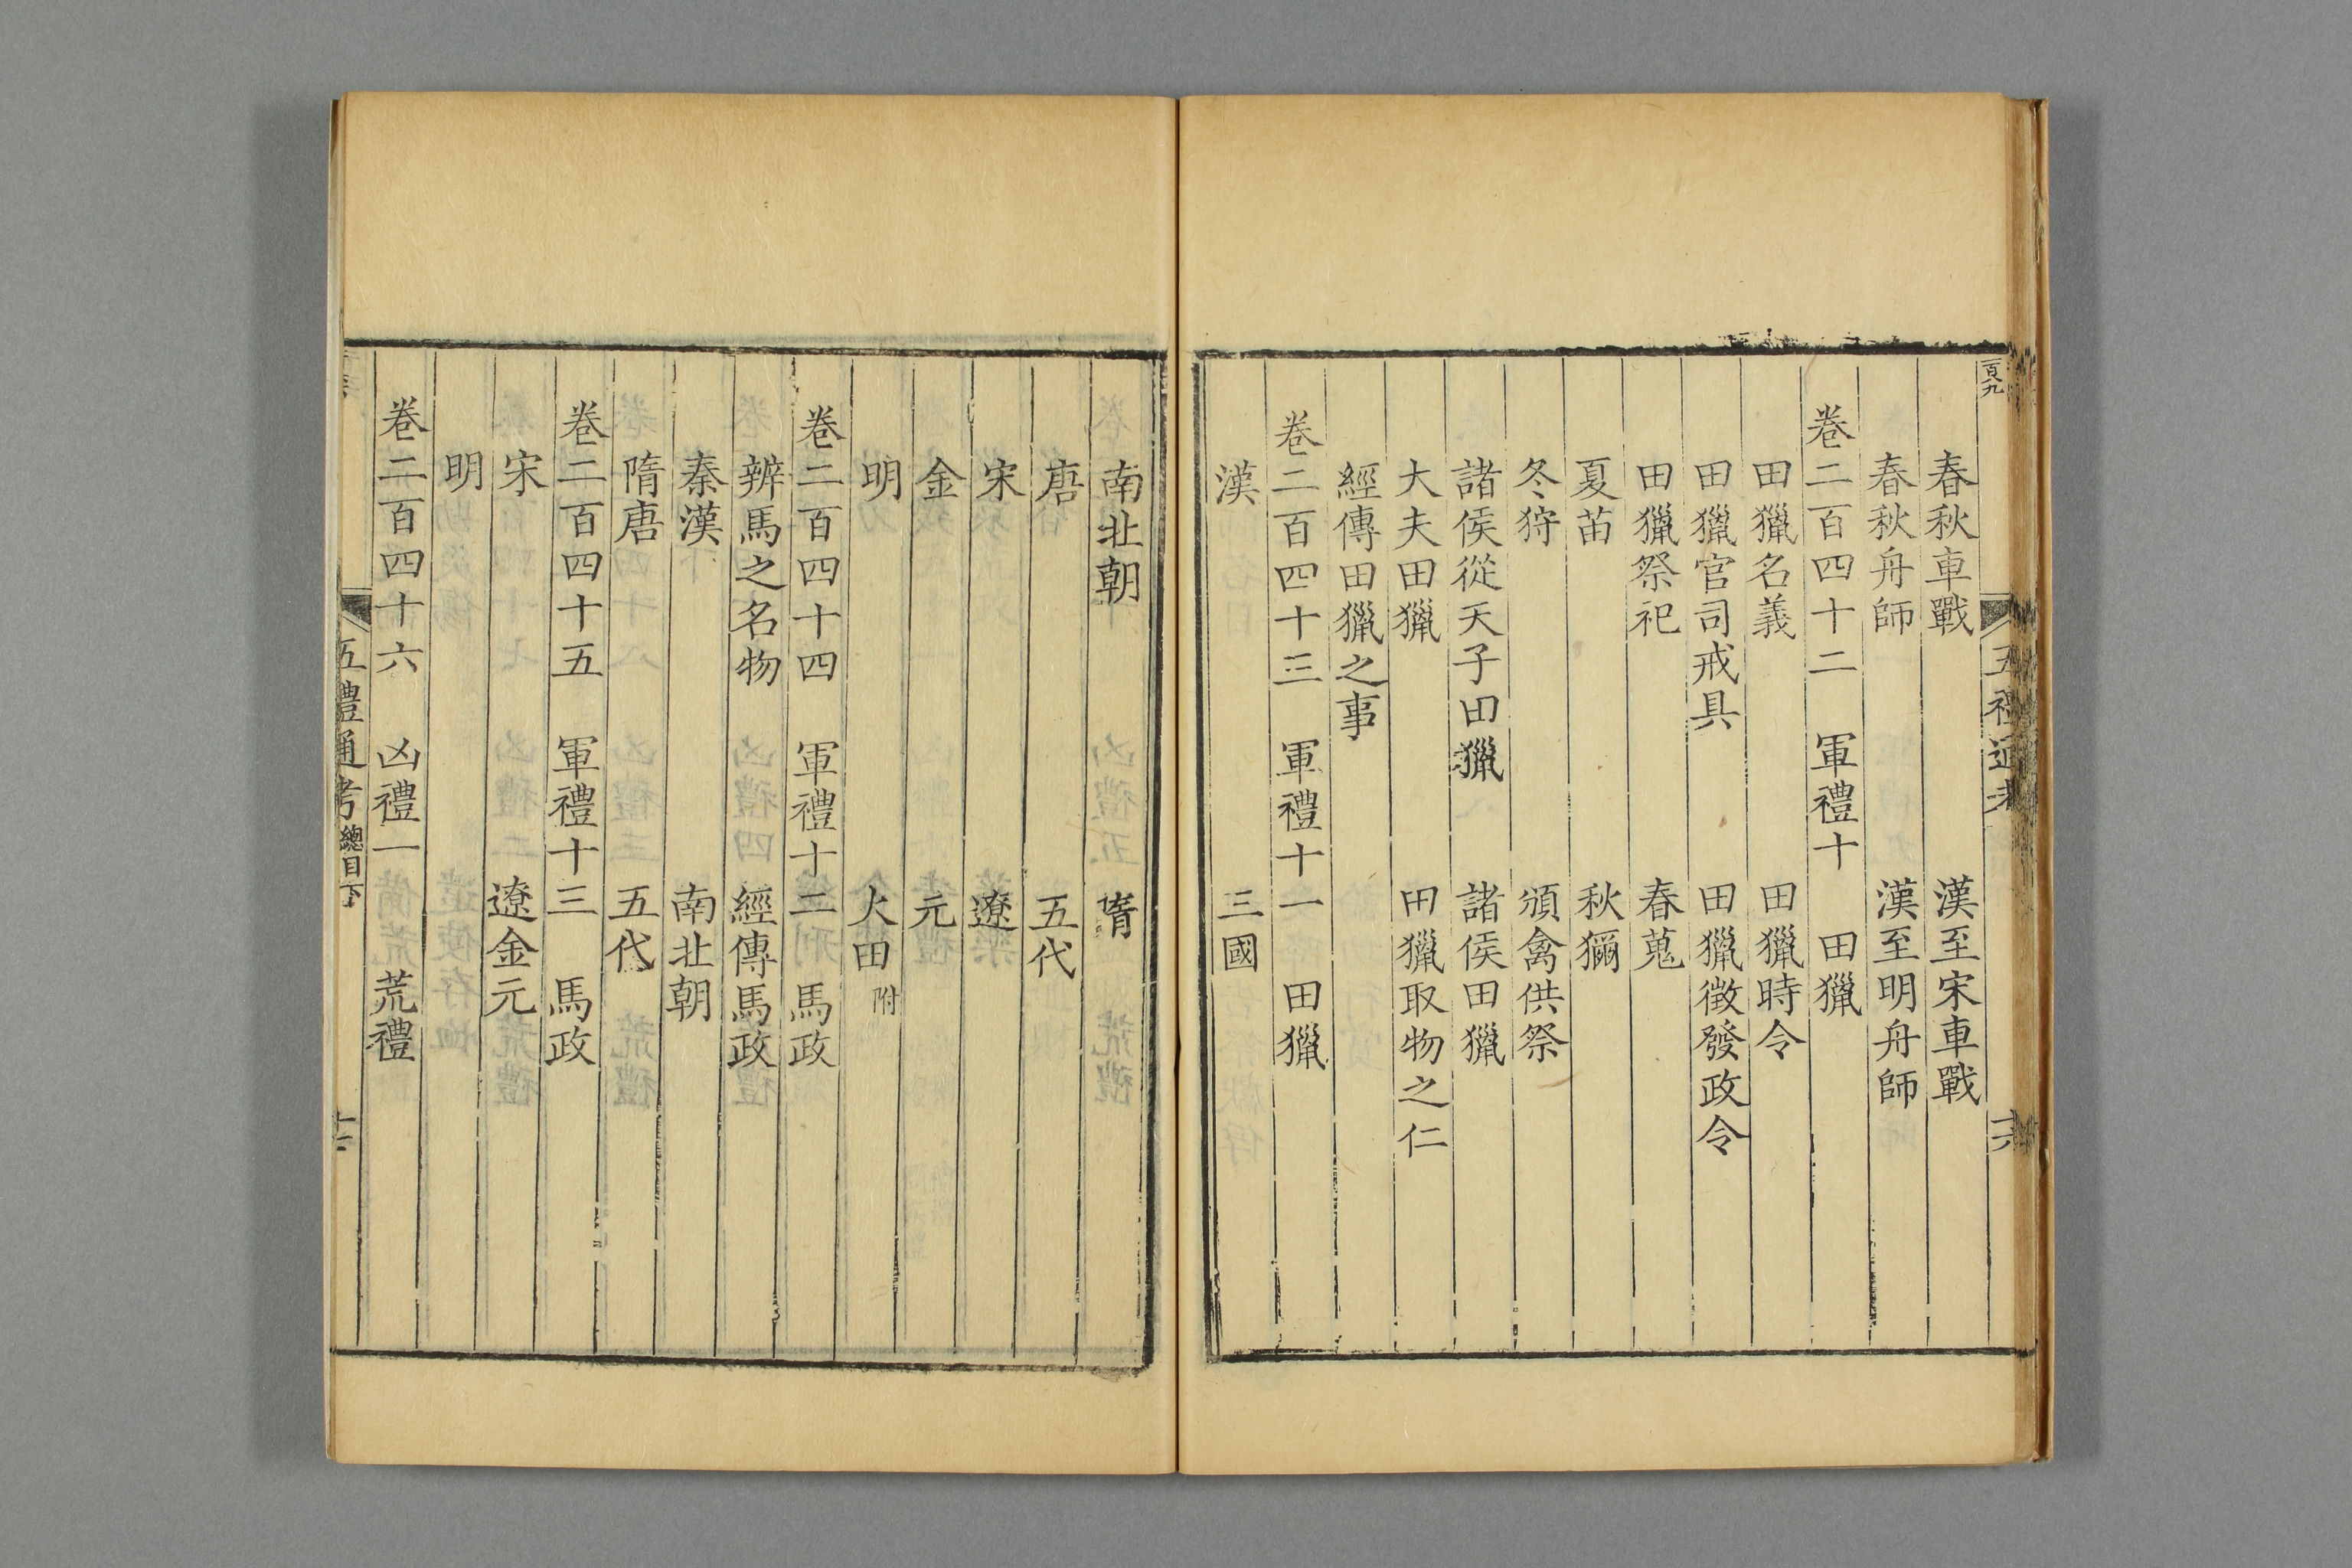 百九
五禮通考
十六
春秋車戰 漢至宋車戰
春秋舟師 漢至明舟師
卷二百四十二 軍禮十 田獵
田獵名義 田獵時令
田獵官司戒具 田獵徵發政令
田獵祭祀 春蒐
夏苗 秋獮
冬狩 頒禽供祭
諸侯從天子田獵 諸侯田獵
大夫田獵 田獵取物之仁
經傳田獵之事
卷二百四十三 軍禮十一 田獵
漢 三國
南北朝 隋
唐 五代
宋 遼
金 元
明 火田附
卷二百四十四 軍禮十二 馬政
辨馬之名物 經傳馬政
秦漢 南北朝
隋唐 五代
卷二百四十五 軍禮十三 馬政
宋 遼金元
明
卷二百四十六 凶禮一 荒禮
五禮通考 總目下